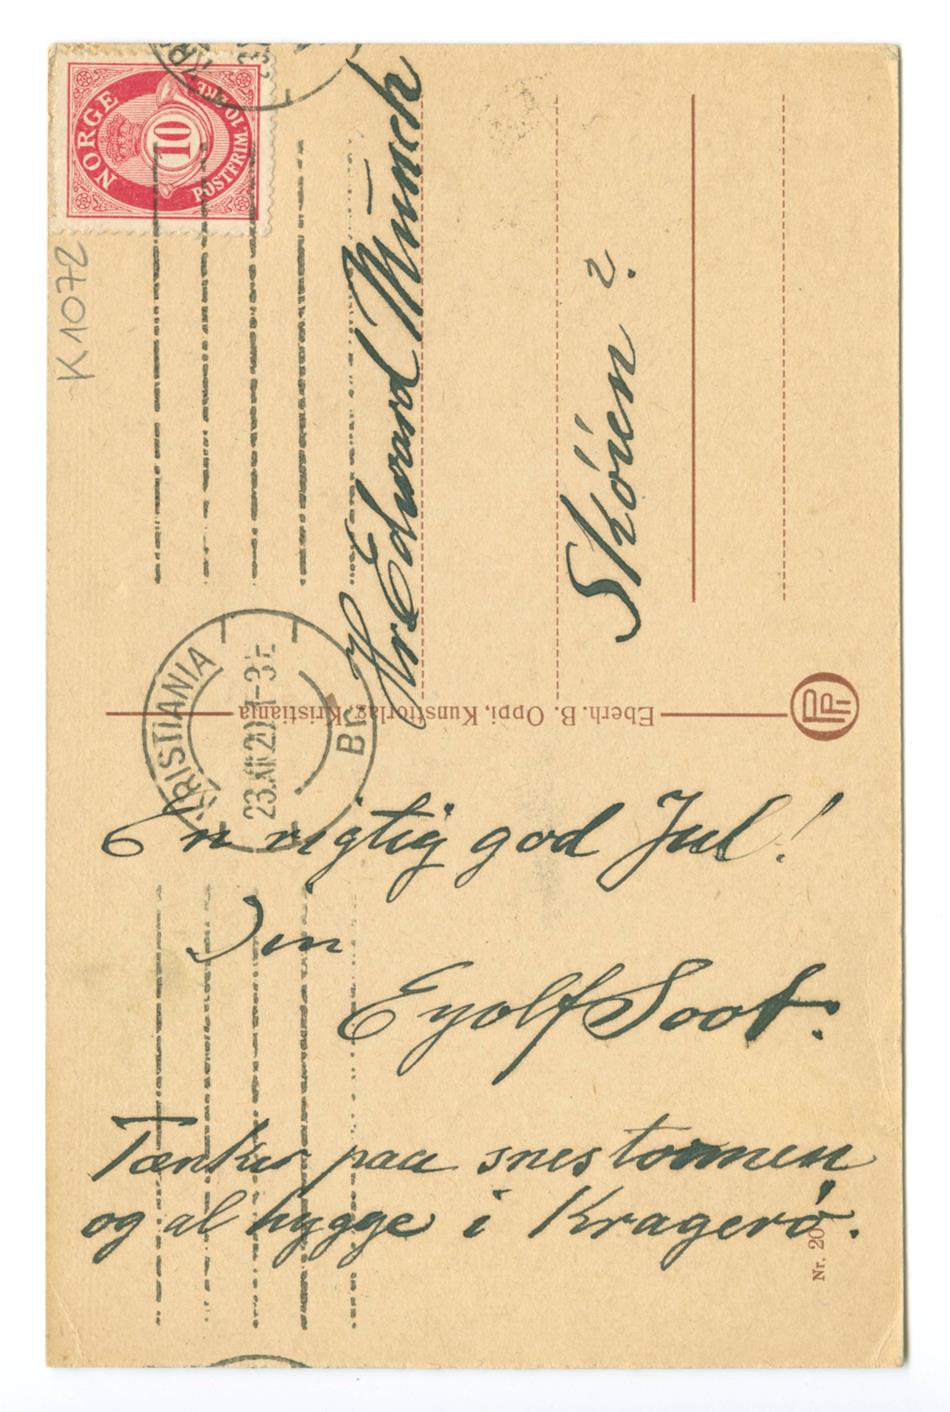 NORGE
10
POSTFRIM. 10 ØRE
K 1072
Hr Edvard Munch
Skóien?
KRISTIANIA
23.XII
Br.
Eberh. B. Oppi, Kunstforlag, Kristiania
En rigtig god Jul!
Din
Eyolf Soot.
Tænker paa snestormen
og al hygge i Kragerø.
Nr. 20